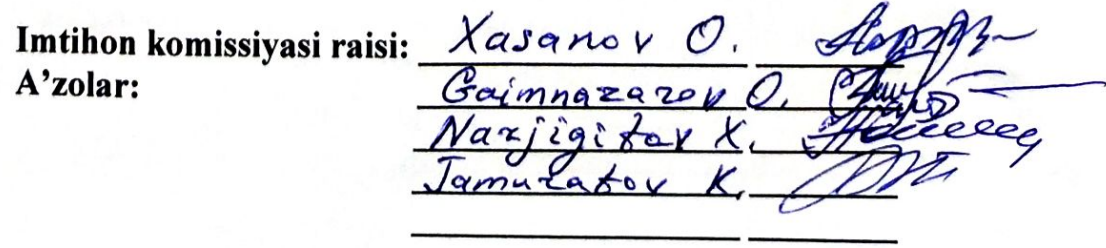 Imtihon komissiyasi raisi: Xasanov O.
A’zolar:
Gaimnazarov O.
Narjigitov X.
Jamuratov K.